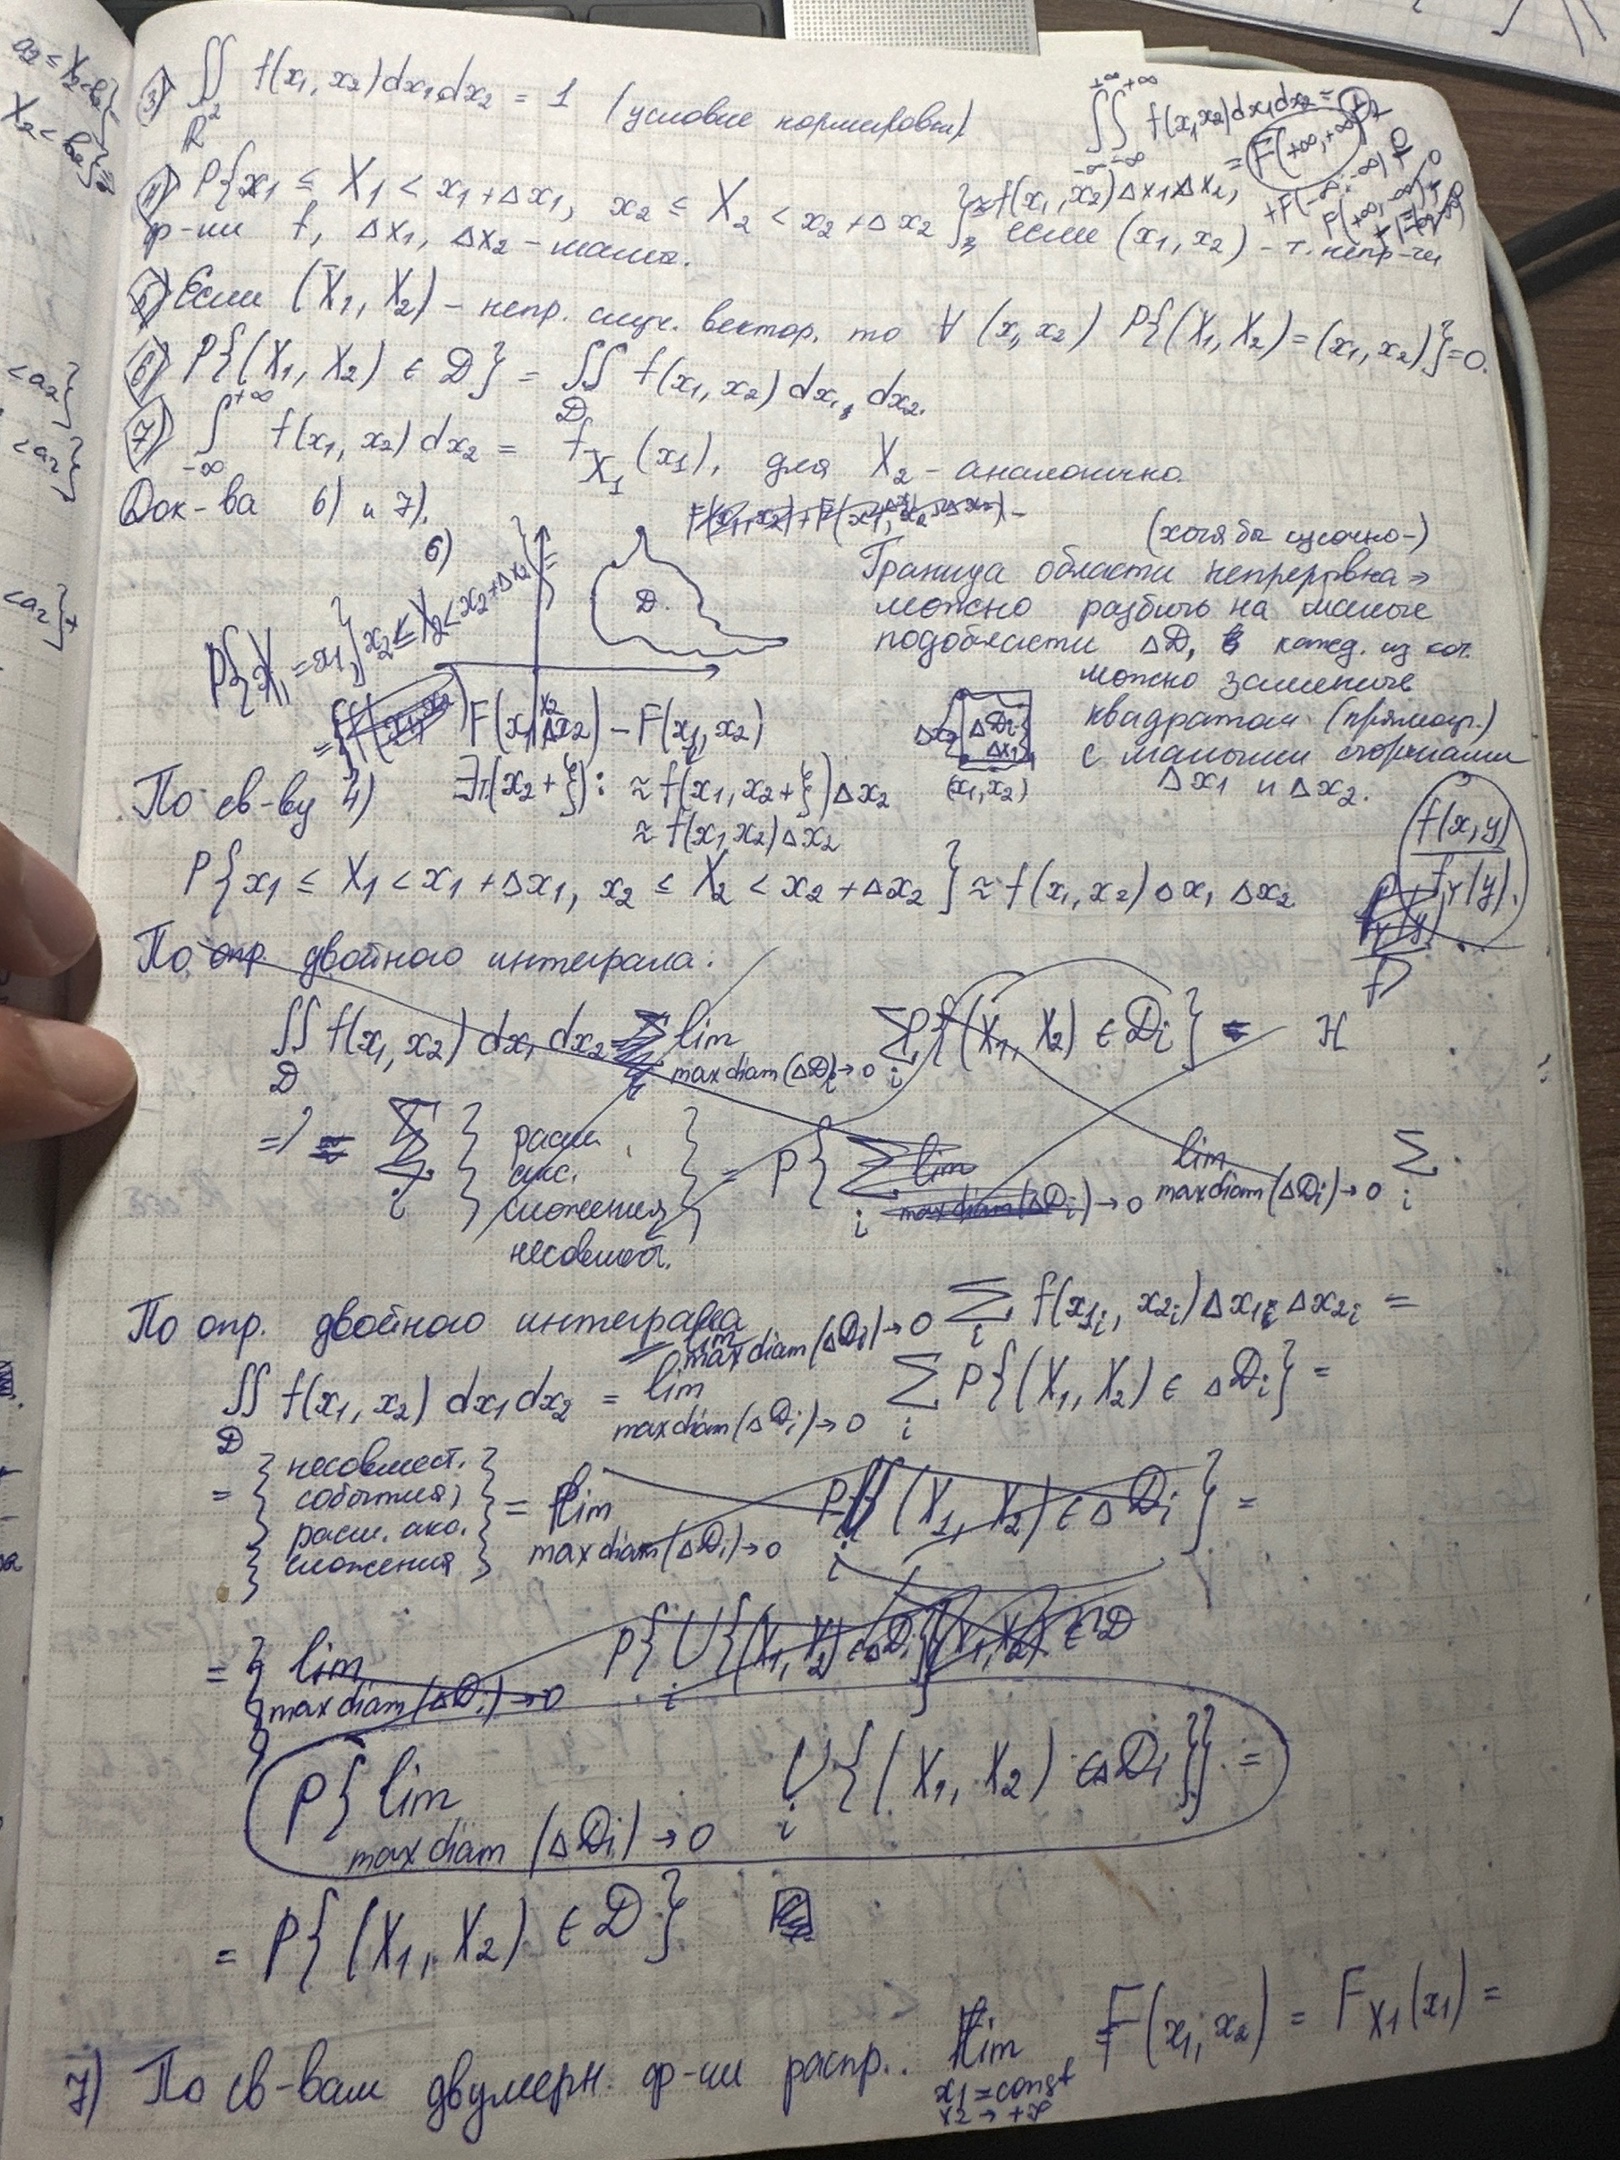 a₂ ≤ X₂ < b₂}
X₂ < b₂}
<a₂}
<a₂}
<a₂}+
3) ∬_{R²} f(x₁, x₂)dx₁dx₂ = 1 (условие нормировки)
∫_{-∞}^{+∞}∫_{-∞}^{+∞} f(x₁x₂)dx₁dx₂ =
= F(+∞,+∞)
+F(-∞,-∞)
4) P{x₁ ≤ X₁ < x₁+Δx₁, x₂ ≤ X₂ < x₂+Δx₂} ≈ f(x₁, x₂)Δx₁Δx₂,
если (x₁, x₂) – т. непр-ти
ф-ии f, Δx₁, Δx₂ – малы.
5) Если (X₁, X₂) – непр. случ. вектор, то ∀ (x₁, x₂) P{(X₁, X₂) = (x₁, x₂)} = 0.
6) P{(X₁, X₂) ∈ D} = ∬_D f(x₁, x₂) dx₁, dx₂.
7) ∫_{-∞}^{+∞} f(x₁, x₂) dx₂ = f_{X₁}(x₁), для X₂ – аналогично.
Док-ва 6) и 7).
6)
D
(хотя бы кусочно-)
Граница области непрерывна ⇒
можно разбить на малые
подобласти ΔD, в кажд. из кот.
можно заменить
квадратом (прямоуг.)
с малыми сторонами
Δx₁ и Δx₂.
ΔDi
Δx₂
Δx₁
(x₁, x₂)
P{X₁ = x₁, x₂ ≤ X₂ < x₂+Δx₂} =
F(x₁, x₂+Δx₂) – F(x₁, x₂)
∃т(x₂+ξ): ≈ f(x₁, x₂+ξ)Δx₂
≈ f(x₁, x₂)Δx₂
По св-ву 4)
P{x₁ ≤ X₁ < x₁+Δx₁, x₂ ≤ X₂ < x₂+Δx₂} ≈ f(x₁, x₂) Δx₁ Δx₂
f(x,y)
f_Y(y).
По опр. двойного интеграла:
∬_D f(x₁, x₂) dx₁ dx₂ = lim_{max diam(ΔDi)→0} Σ_i P{(X₁, X₂) ∈ Di} =
Σ_i { расш.
акс.
сложения
несовмест. } = P{ Σ_i lim_{max diam(ΔDi)→0} lim_{max diam(ΔDi)→0} Σ_i
По опр. двойного интеграла
= lim_{max diam(ΔDi)→0} Σ_i f(x₁ᵢ, x₂ᵢ)Δx₁ᵢ Δx₂ᵢ =
∬_D f(x₁, x₂) dx₁dx₂ = lim_{max diam(ΔDi)→0} Σ_i P{(X₁, X₂) ∈ ΔDi} =
= { несовмест.
события,
расш. акс.
сложения } = lim_{max diam(ΔDi)→0} P{(X₁, X₂) ∈ ΔDi} =
= } lim_{max diam(ΔDi)→0} P{∪_i{(X₁, X₂) ∈ ΔDi}
P{ lim_{max diam(ΔDi)→0} ∪_i {(X₁, X₂) ∈ ΔDi}} =
= P{(X₁, X₂) ∈ D}
7) По св-вам двумерн. ф-ии распр.: lim_{x₁=const, x₂→+∞} F(x₁, x₂) = F_{X₁}(x₁) =